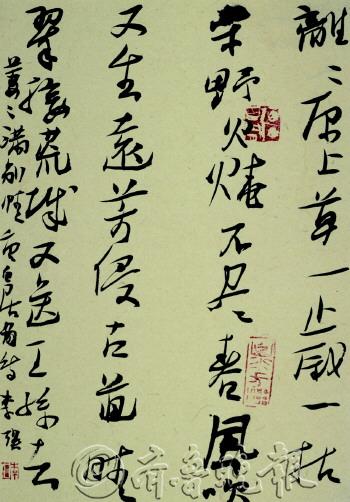 離〻原上草一歲一枯
榮野火燒不尽春風吹
又生遠芳侵古道晴
翠接荒城又送王孫去
萋〻滿別情 李強
齐鲁晚报